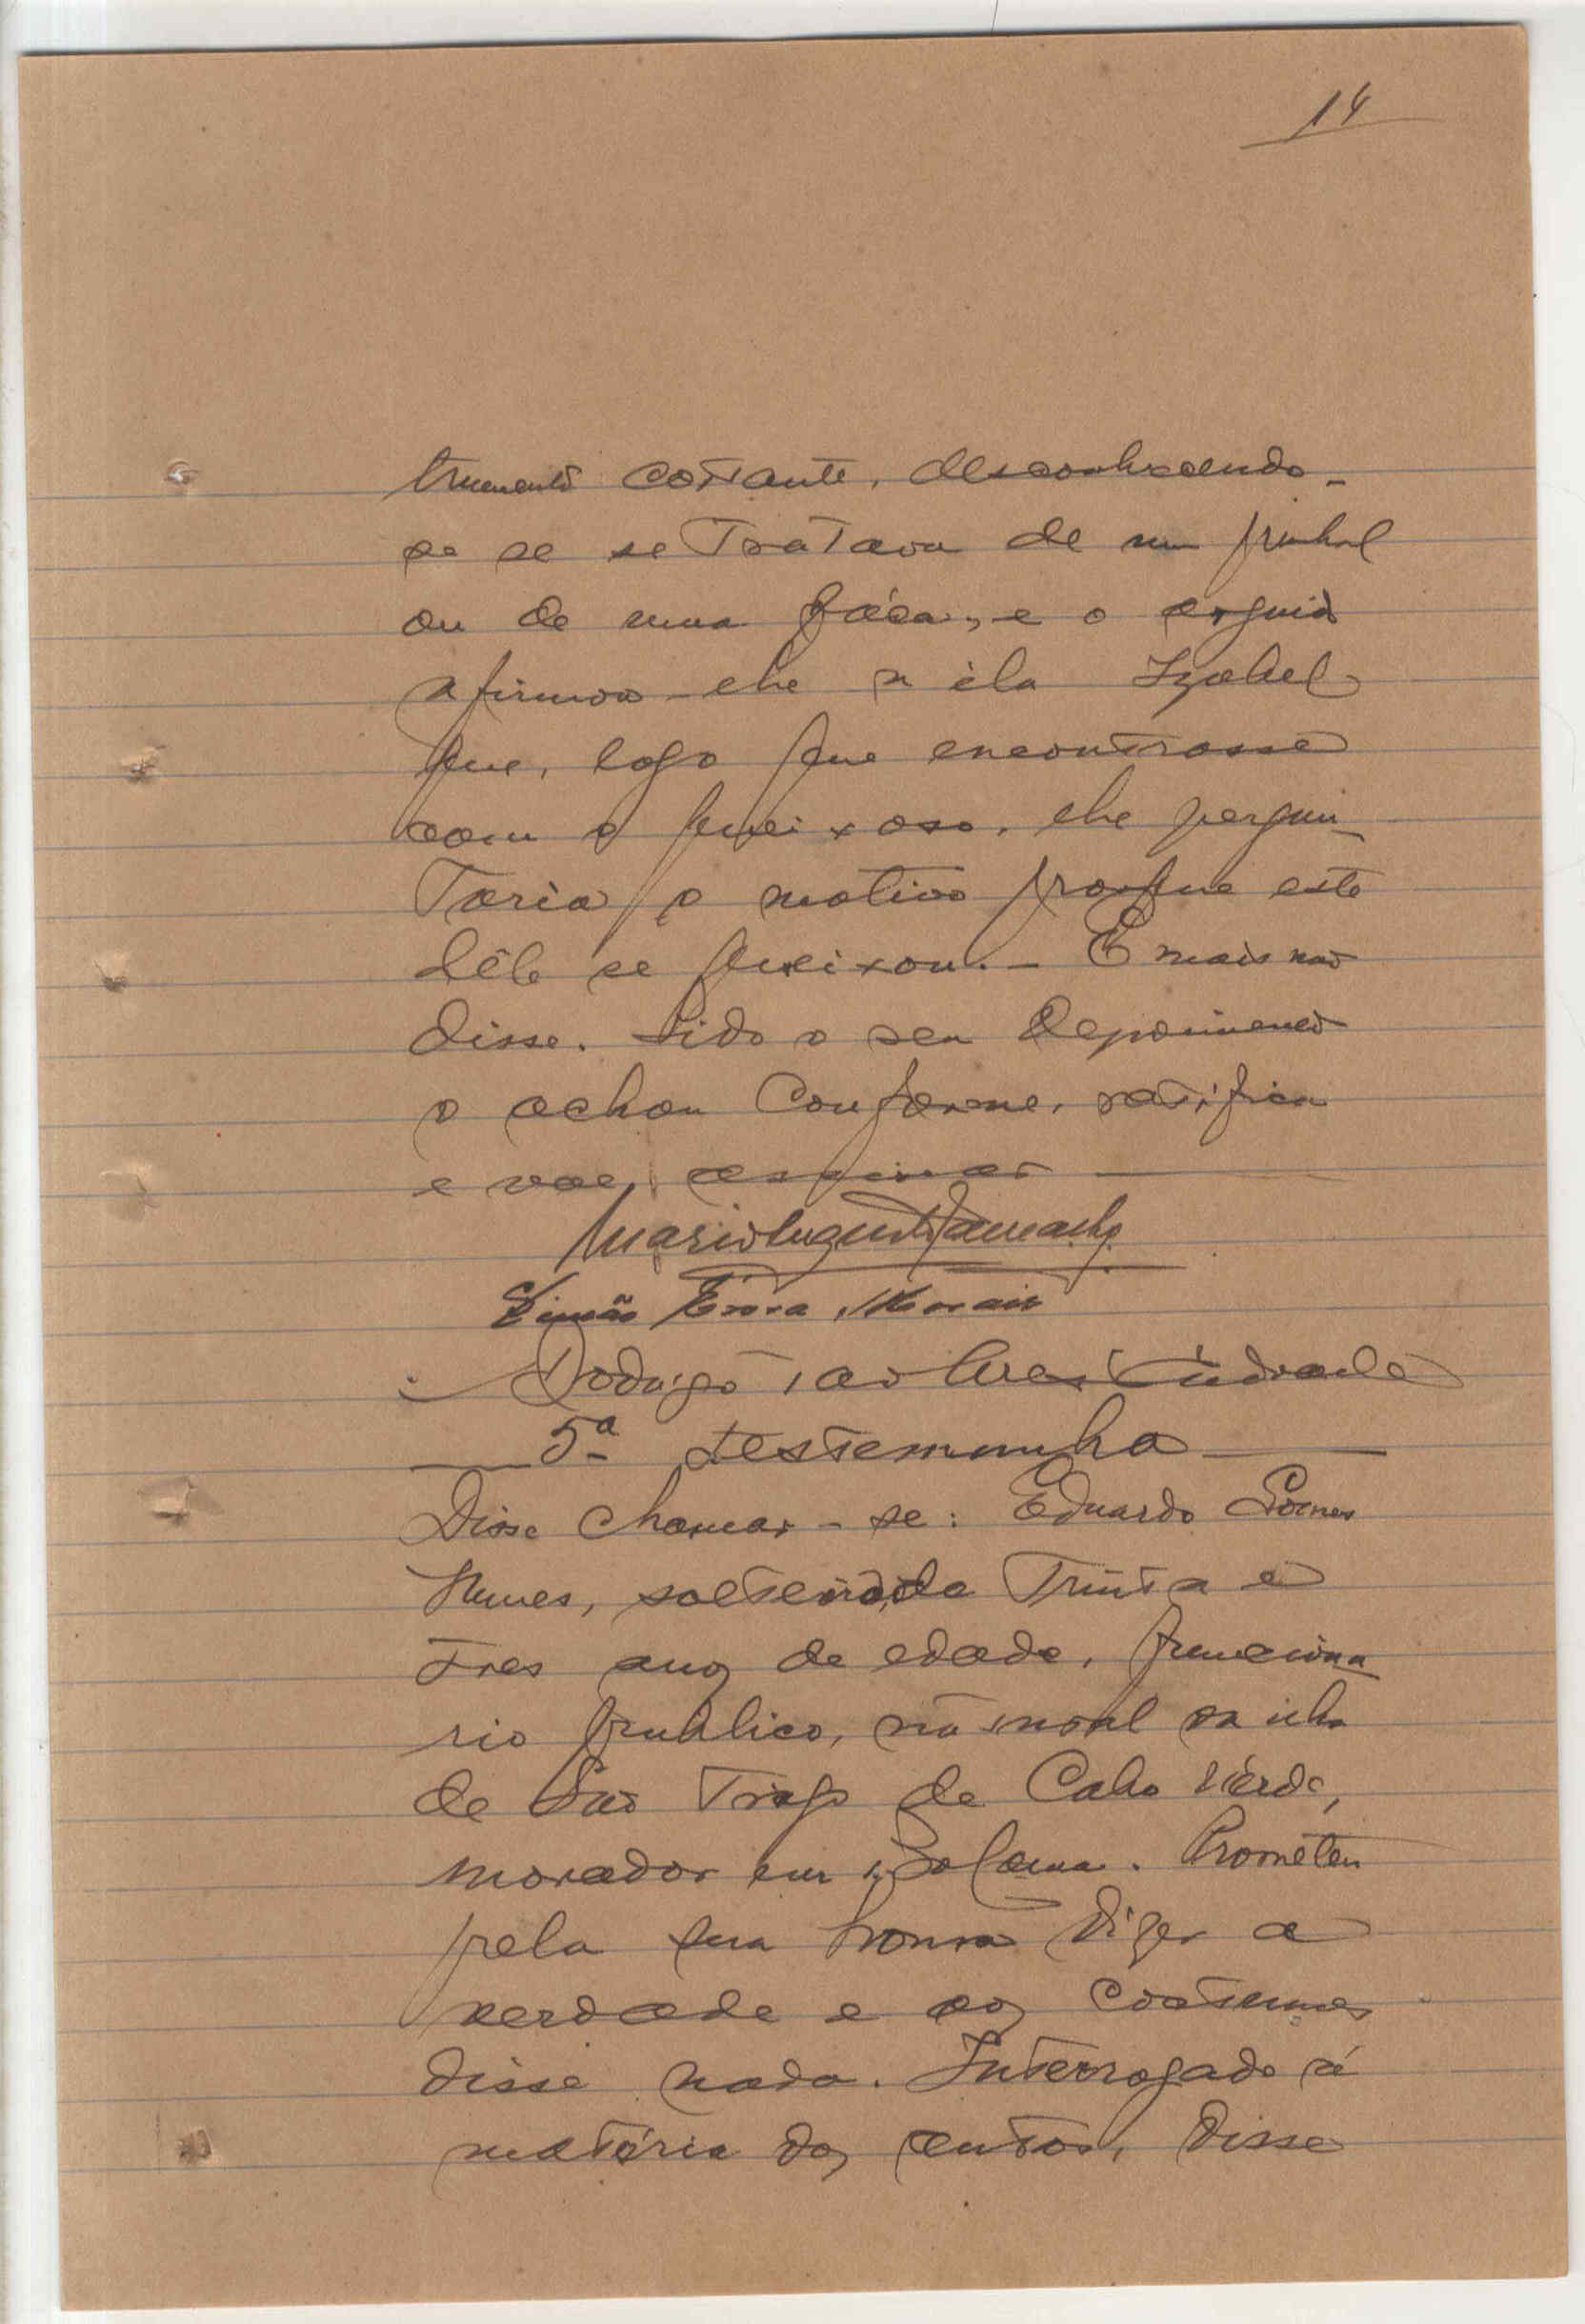 14
trumento cortante, desconhecendo-
se se se tratava de um punhal
ou de uma fáca, e o arguido
afirmou-lhe a éla Izabel
que, logo que encontrasse
com o queixoso, lhe pergun-
taria o motivo porque este
dêle se queixou. - E mais não
disse. Lido o seu depoimento
o achou conforme, ratifica
e vae assinar
Mario Augusto Damacho
Simão Évora Morais
Rodrigo Andrade
5ª testemunha
Disse chamar-se: Eduardo Gomes
Nunes, solteiro, de trinta e
tres anos de edade, funciona
rio publico, natural da ilha
de São Tiago de Cabo Vérde,
morador em Bolama. Prometeu
pela sua honra dizer a
verdade e aos costumes
disse nada. Interrogado á
matéria dos autos, disse